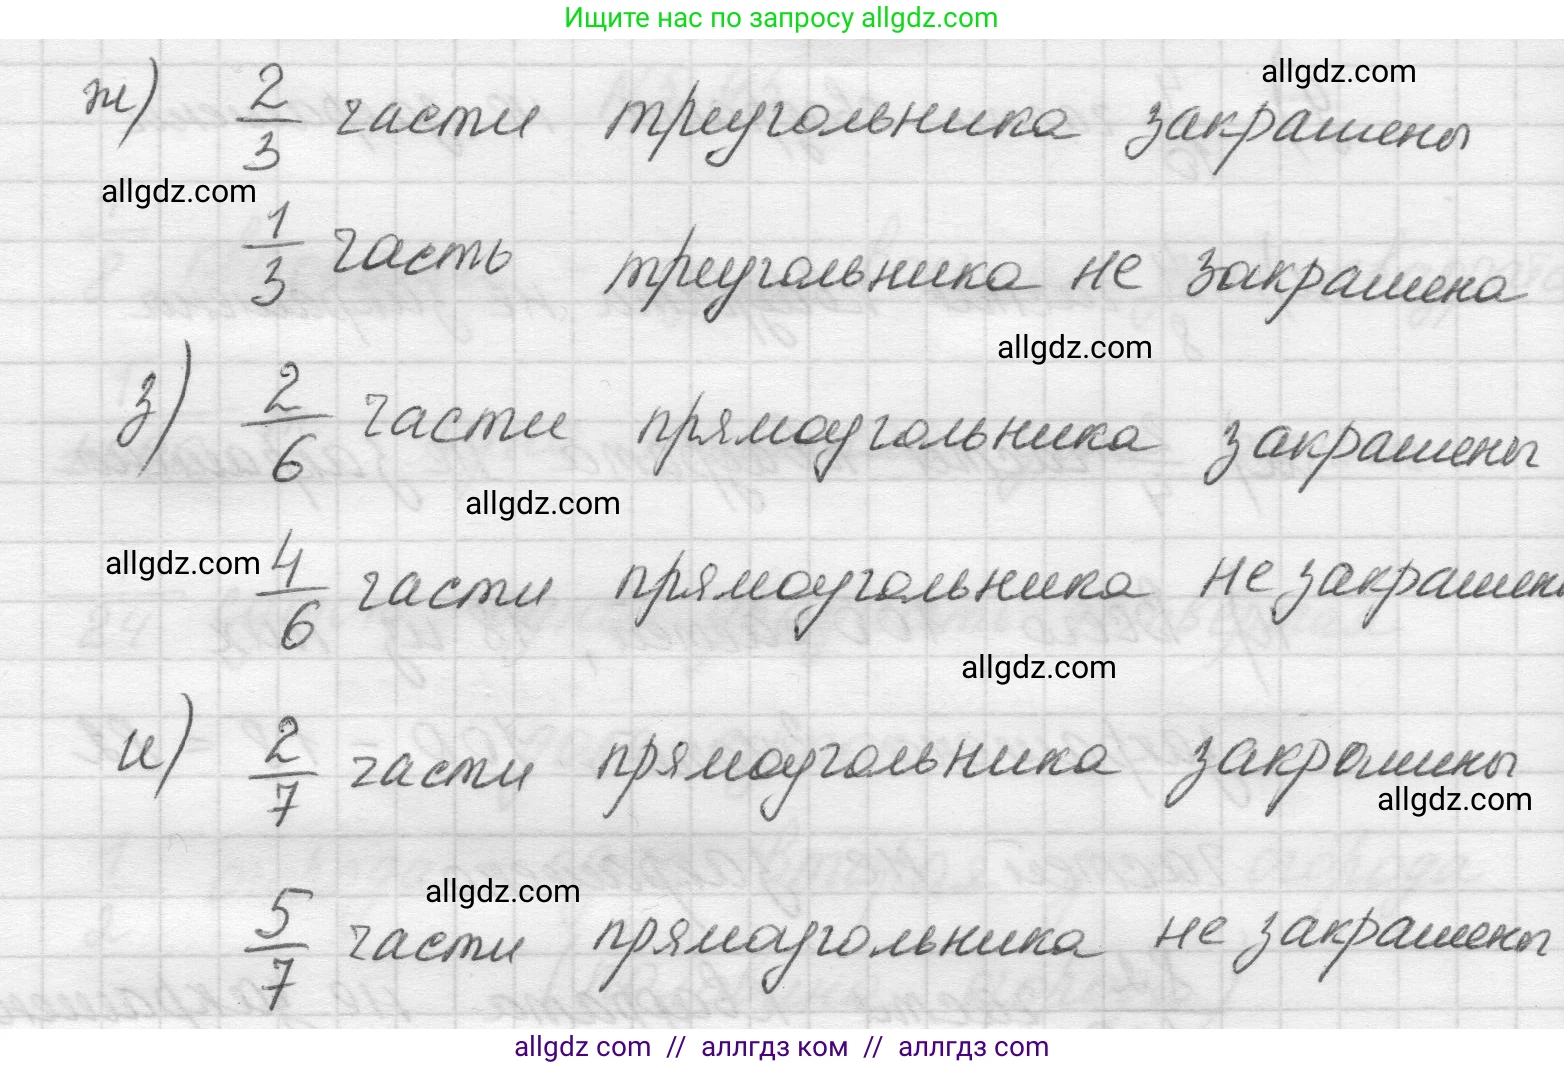 Ищите нас по запросу allgdz.com
allgdz.com
ж) 2/3 части треугольника закрашены
allgdz.com
1/3 часть треугольника не закрашена
allgdz.com
з) 2/6 части прямоугольника закрашены
allgdz.com
allgdz.com
4/6 части прямоугольника не закрашены
allgdz.com
и) 2/7 части прямоугольника закрашины
allgdz.com
allgdz.com
5/7 части прямоугольника не закрашены
allgdz com // аллгдз ком // аллгдз com